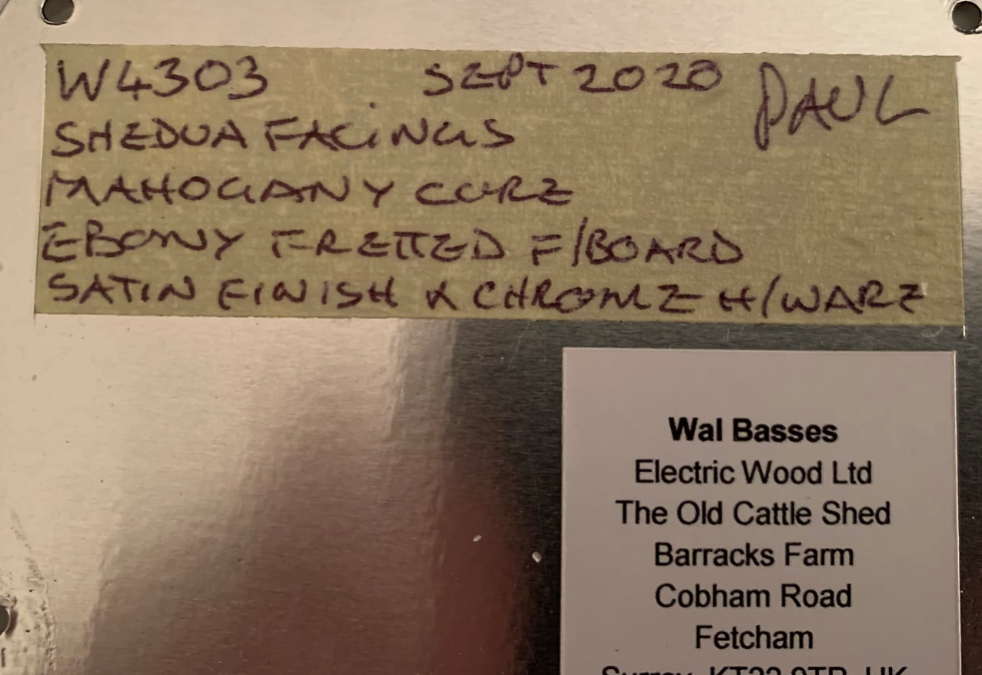 W4303 SEPT 2020 PAUL
SHEDUA FACINGS
MAHOGANY CORE
EBONY FRETTED F/BOARD
SATIN FINISH & CHROME H/WARE
Wal Basses
Electric Wood Ltd
The Old Cattle Shed
Barracks Farm
Cobham Road
Fetcham
Surrey, KT22 9TR, UK